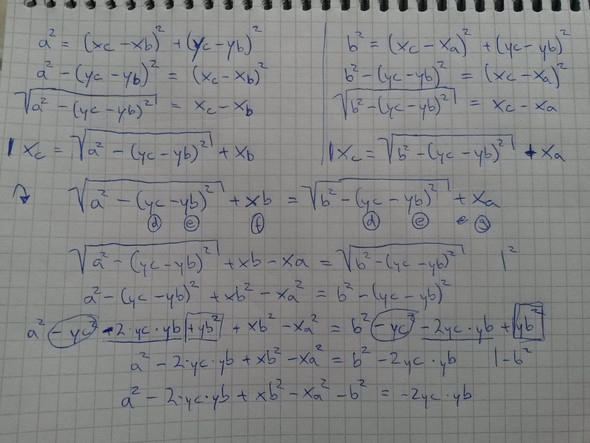 a² = (xc-xb)² + (yc-yb)²
a² - (yc-yb)² = (xc-xb)²
√(a² - (yc-yb)²) = xc-xb
| xc = √(a² - (yc-yb)²) + xb
b² = (xc-xa)² + (yc-yb)²
b² - (yc-yb)² = (xc-xa)²
√(b² - (yc-yb)²) = xc-xa
| xc = √(b² - (yc-yb)²) + xa
√(a² - (yc-yb)²) + xb = √(b² - (yc-yb)²) + xa
d e f d e g
√(a² - (yc-yb)²) + xb - xa = √(b² - (yc-yb)²) |²
a² - (yc-yb)² + xb² - xa² = b² - (yc-yb)²
a² - yc² - 2·yc·yb + yb² + xb² - xa² = b² - yc² - 2yc·yb + yb²
a² - 2·yc·yb + xb² - xa² = b² - 2yc·yb |-b²
a² - 2·yc·yb + xb² - xa² - b² = -2yc·yb